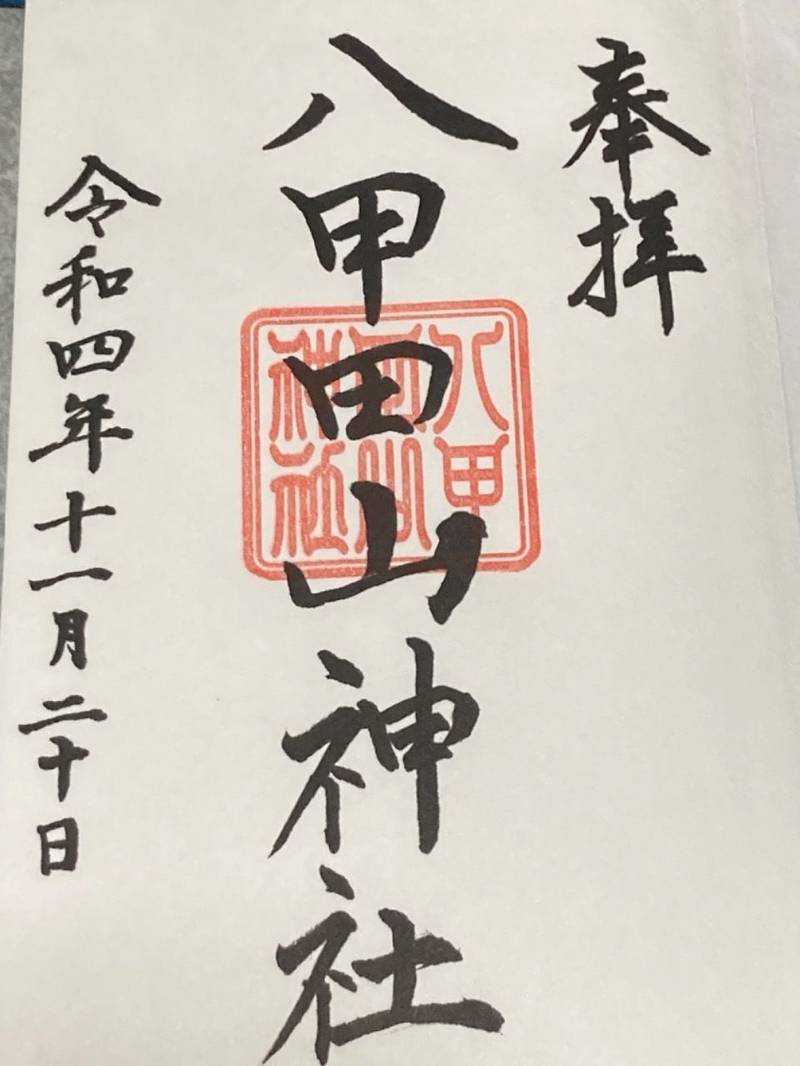 奉拝
八甲田山神社
八甲
田山
神社
令和四年十一月二十日